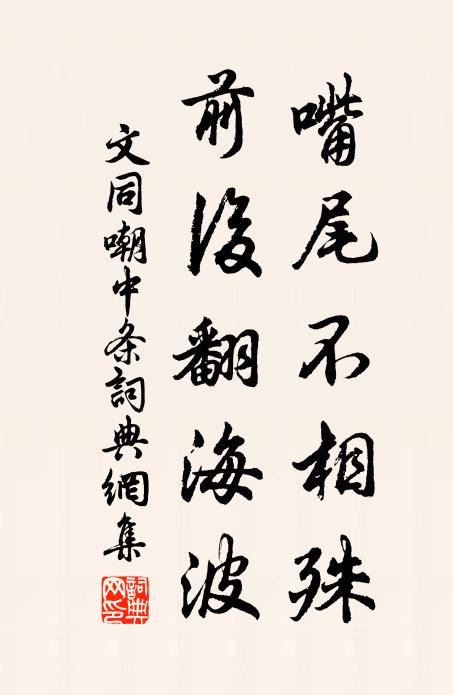 嘴尾不相殊
前後翻海波
文同嘲中条詞典網集
詞典網印